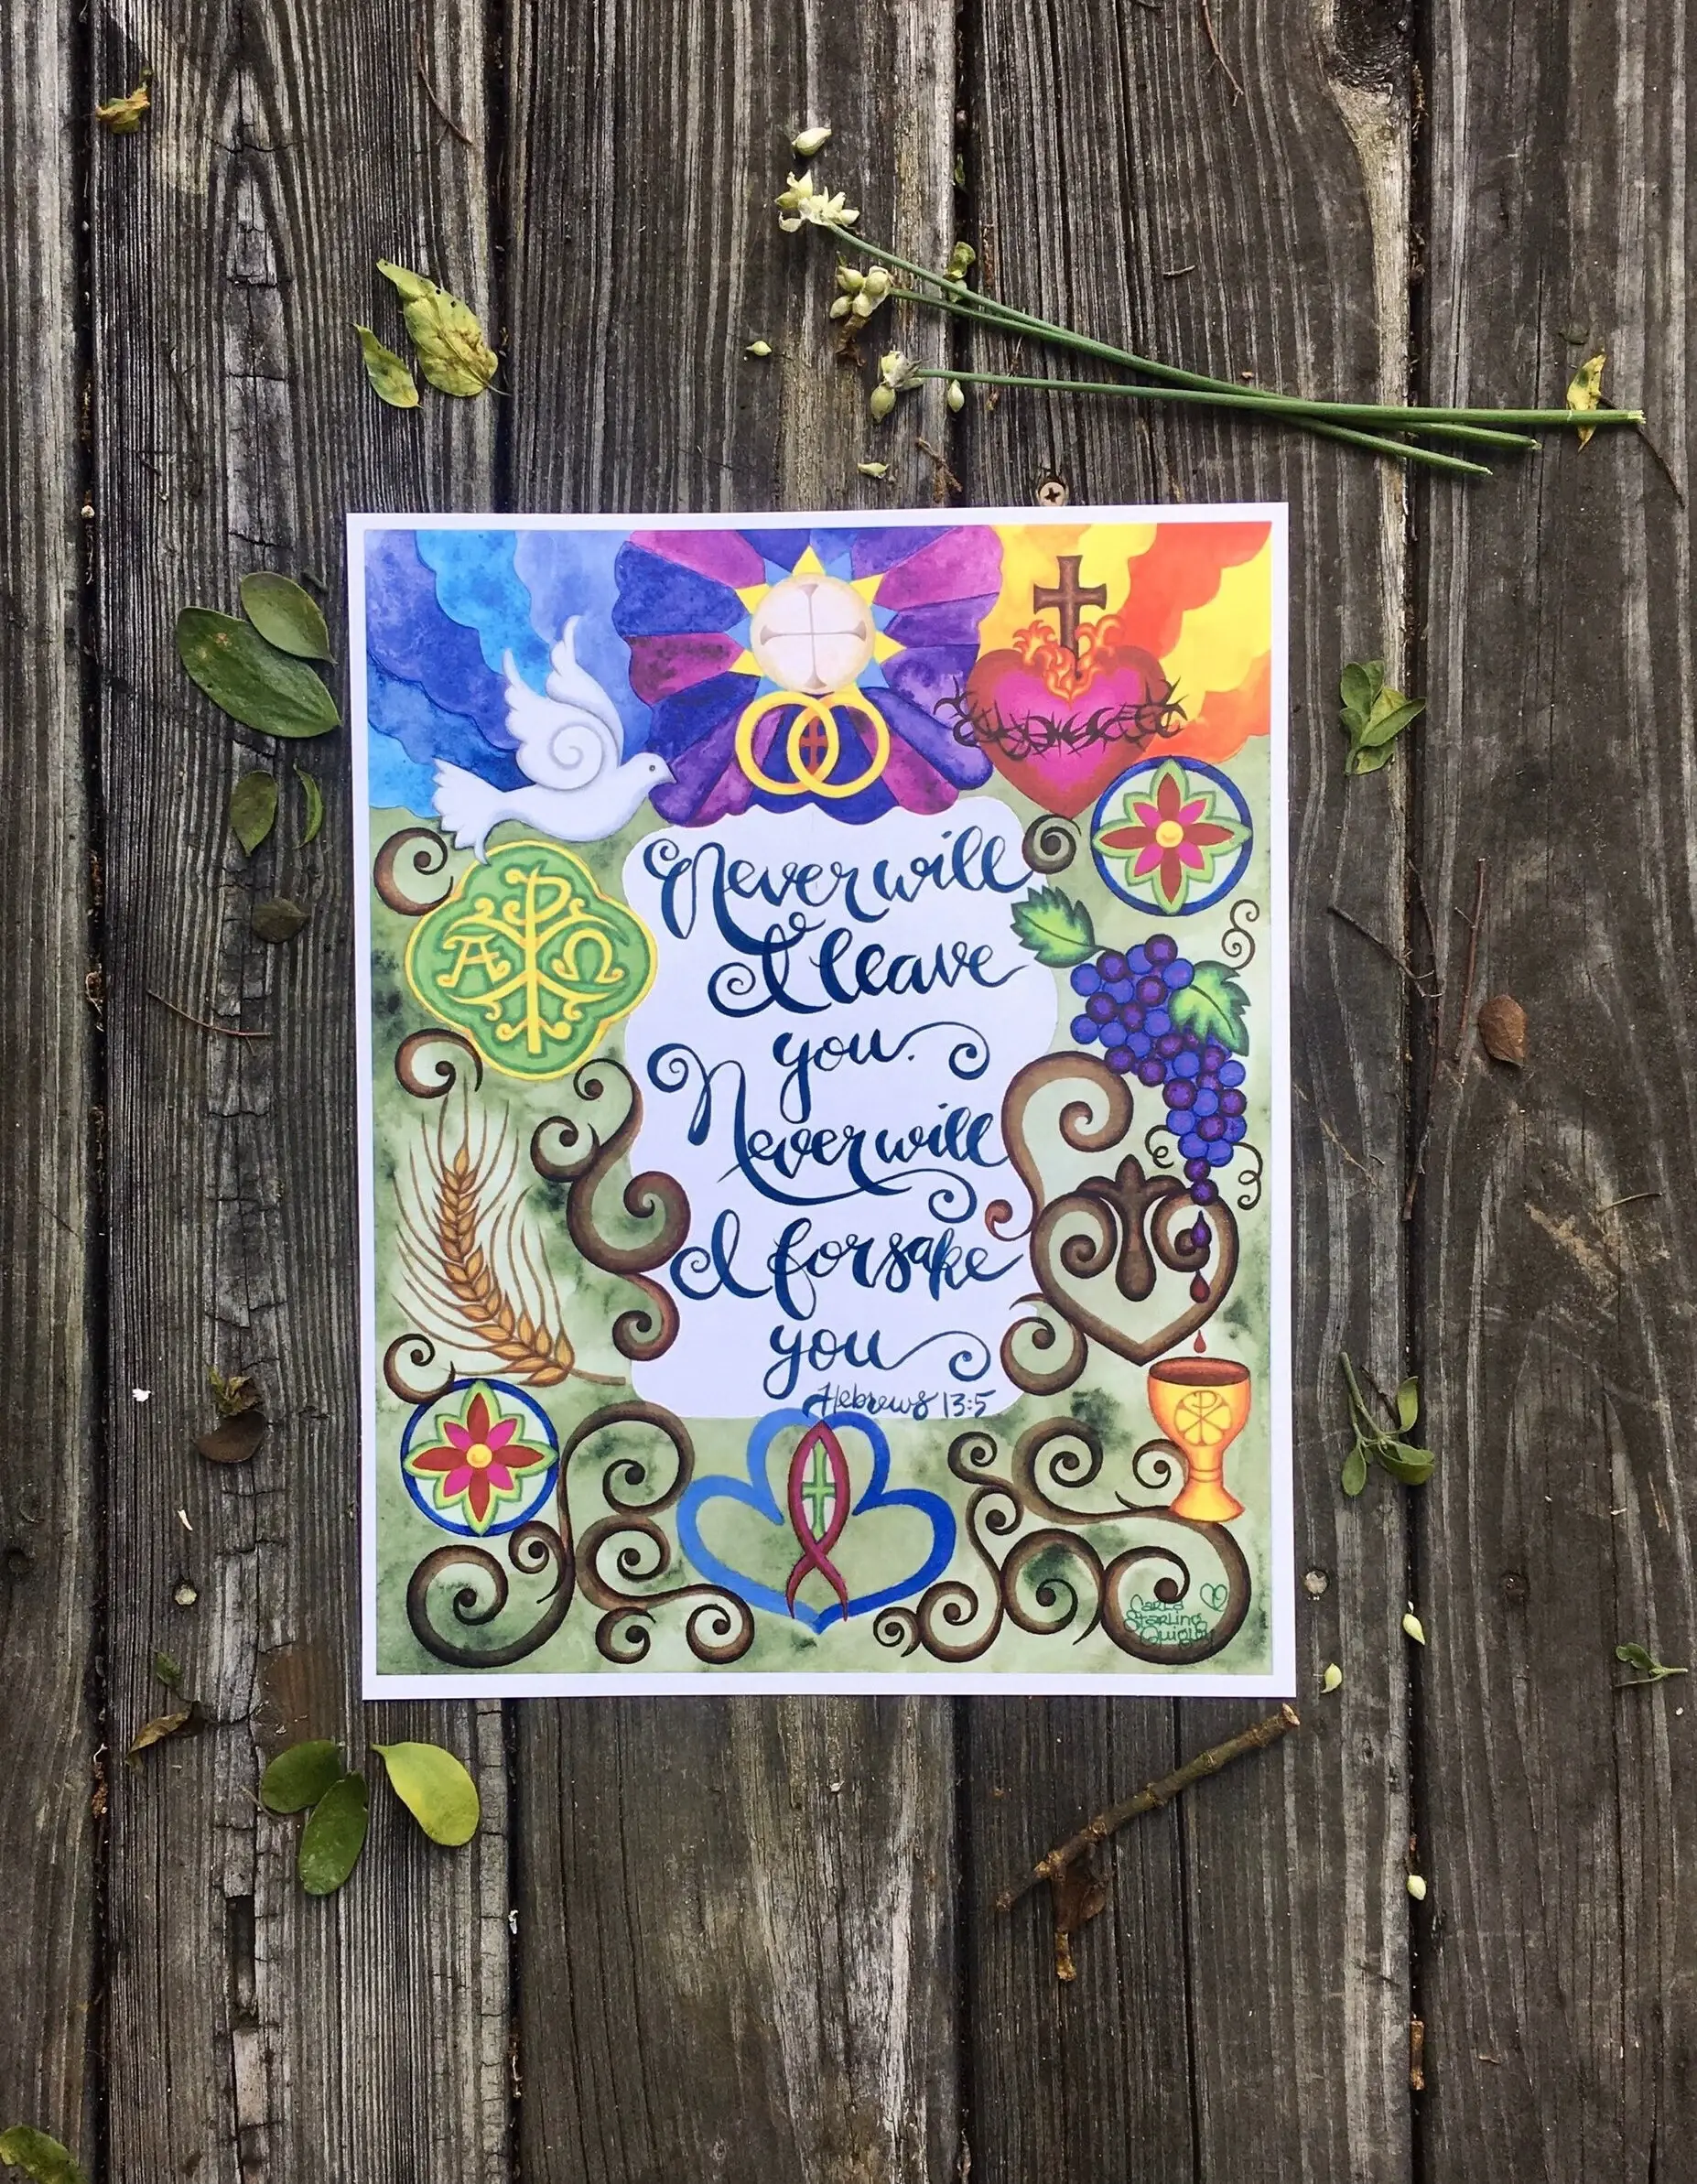 Never will
I leave
you.
Never will
I forsake
you
Hebrews 13:5
Α Ω
Carla
Starling
Quigley